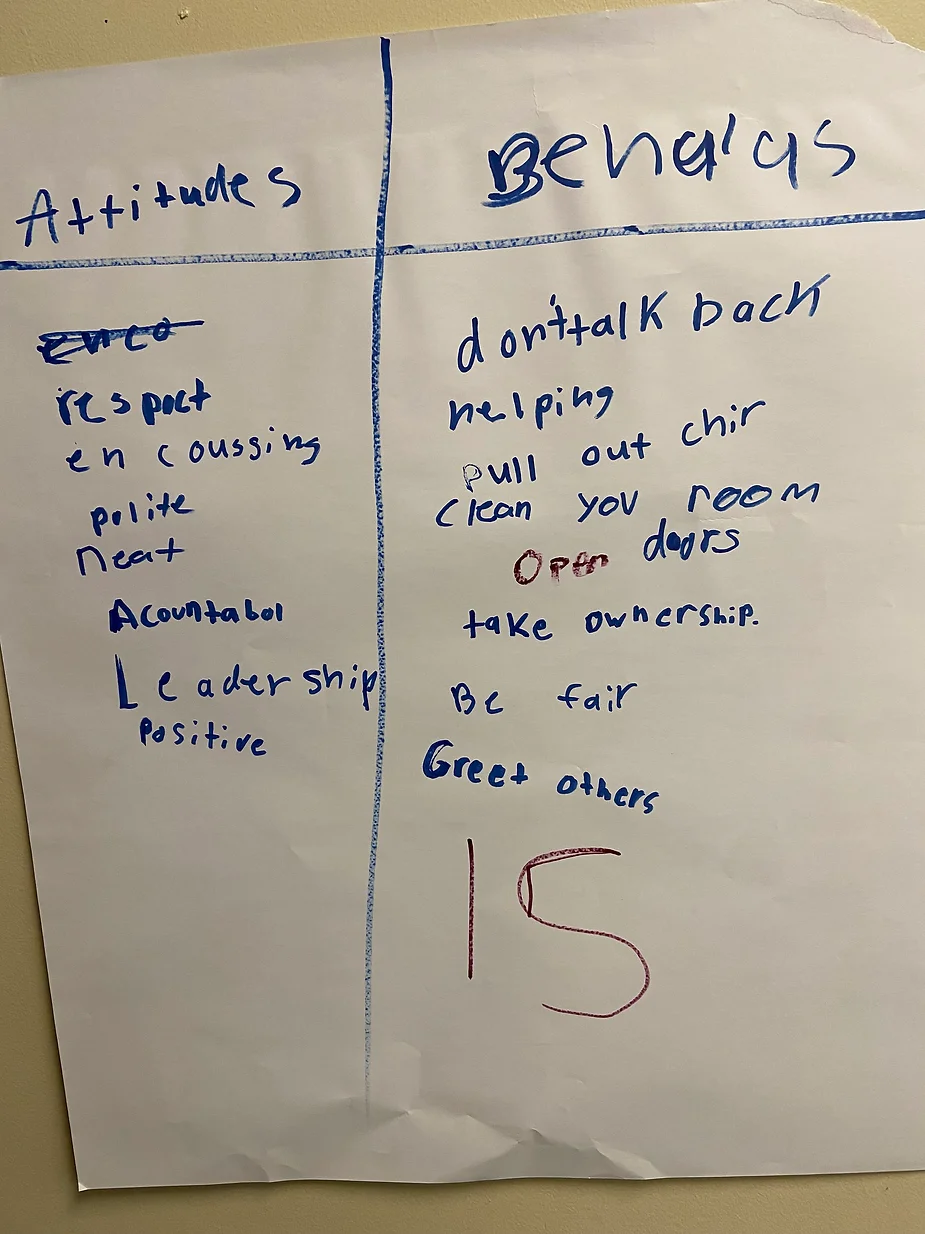 Attitudes
respect
encoussing
polite
neat
Acountabol
Leadership
Positive
Behavi'as
don't talk back
helping
pull out chir
clean you room
Open doors
take ownership.
Be fair
Greet others
15